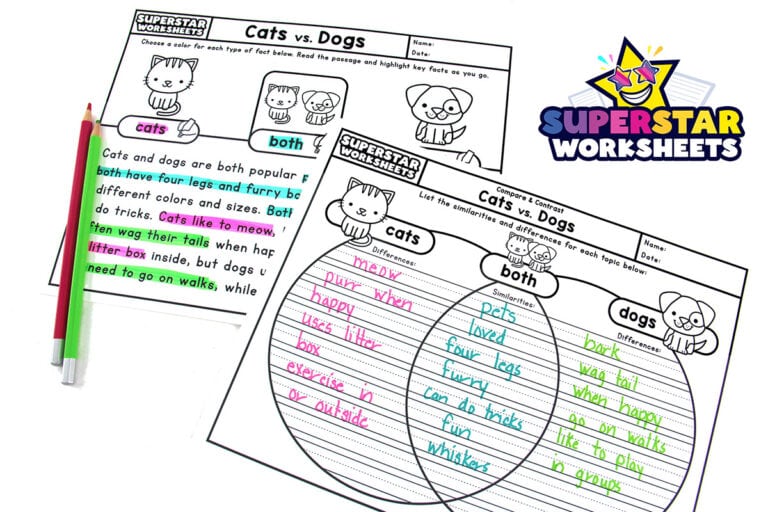 SUPERSTAR
WORKSHEETS
Cats vs. Dogs
Name:
Date:
Choose a color for each type of fact below. Read the passage and highlight key facts as you go.
cats
both
Cats and dogs are both popular
both have four legs and furry
different colors and sizes. Both
do tricks. Cats like to meow,
often wag their tails when
litter box inside, but dogs
need to go on walks, while
SUPERSTAR
WORKSHEETS
SUPERSTAR
WORKSHEETS
Compare & Contrast
Cats vs. Dogs
Name:
Date:
List the similarities and differences for each topic below:
cats
both
dogs
Differences:
Similarities:
Differences:
meow
purr when
happy
uses litter
box
exercise in
or outside
pets
loved
four legs
furry
can do tricks
fun
whiskers
bark
wag tail
when happy
go on walks
like to play
in groups